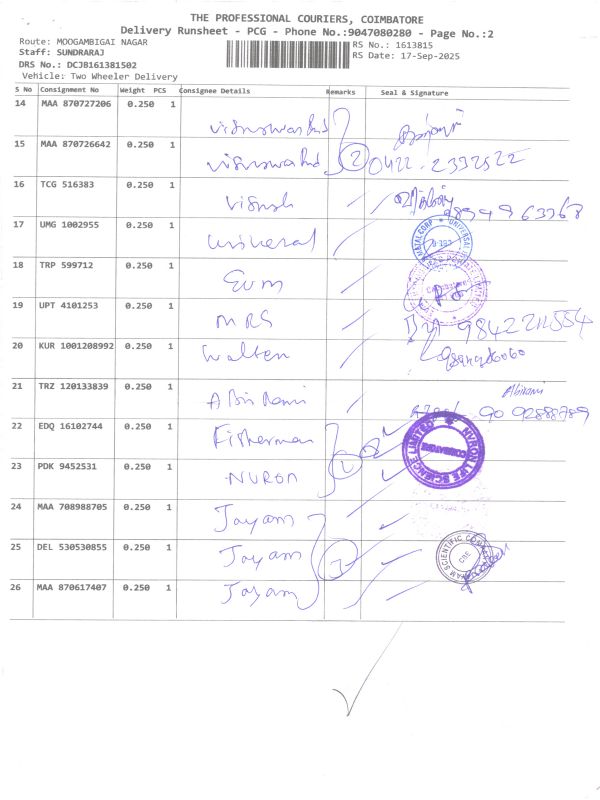 THE PROFESSIONAL COURIERS, COIMBATORE
Delivery Runsheet - PCG - Phone No.:9047080280 - Page No.:2
Route: MOOGAMBIGAI NAGAR
RS No.: 1613815
Staff: SUNDRARAJ
RS Date: 17-Sep-2025
DRS No.: DCJB161381502
Vehicle: Two Wheeler Delivery
S No Consignment No Weight PCS Consignee Details Remarks Seal & Signature
14 MAA 870727206 0.250 1
15 MAA 870726642 0.250 1 2 0422-2332522
16 TCG 516383 0.250 1 Vignesh
17 UMG 1002955 0.250 1 Universal
18 TRP 599712 0.250 1 Evm
19 UPT 4101253 0.250 1 MRS
20 KUR 1001208992 0.250 1 Walten
21 TRZ 120133839 0.250 1 Abirami Abirami
22 EDQ 16102744 0.250 1 Fisherman
23 PDK 9452531 0.250 1 NURON 2
NVRON LIFE SCIENCE LIMITED
COIMBATORE
24 MAA 708988705 0.250 1 Jayam
25 DEL 530530855 0.250 1 Jayam 3
CBE
26 MAA 870617407 0.250 1 Jayam